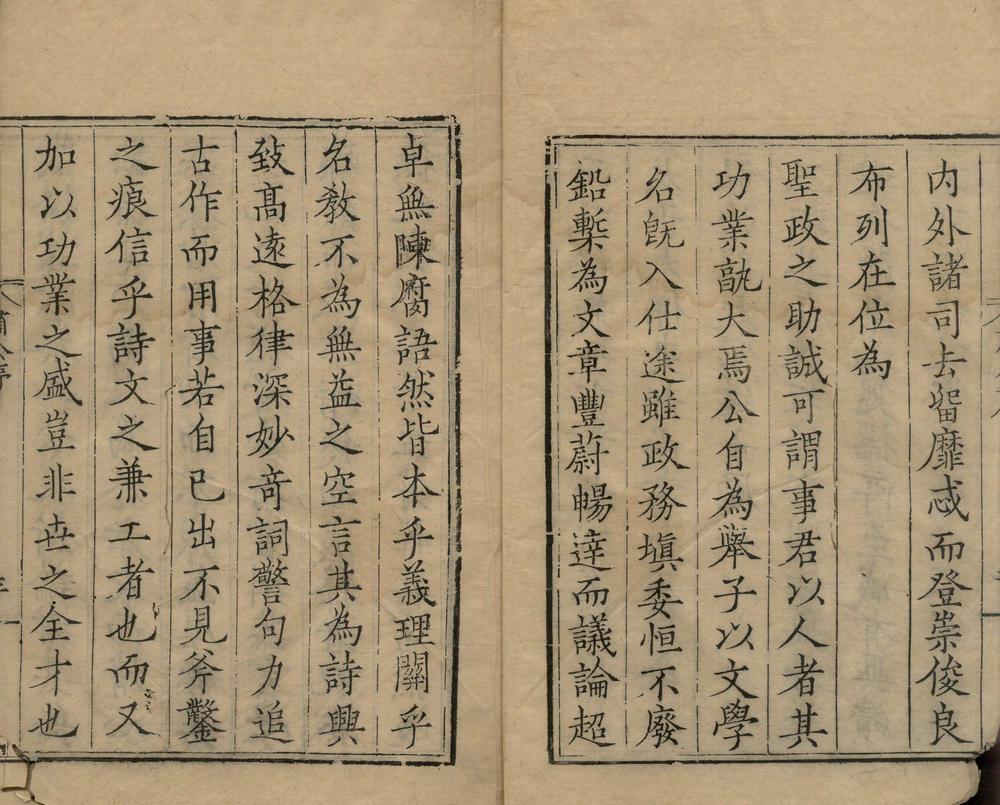 内外諸司去留靡忒而登崇俊良
布列在位為
聖政之助誠可謂事君以人者其
功業孰大焉公自為舉子以文學
名旣入仕途雖政務塡委恒不廢
鉛槧為文章豐蔚暢達而議論超
卓無陳腐語然皆本乎義理關乎
名敎不為無益之空言其為詩興
致髙遠格律深妙奇詞警句力追
古作而用事若自已出不見斧鑿
之痕信乎詩文之兼工者也而又
加以功業之盛豈非世之全才也